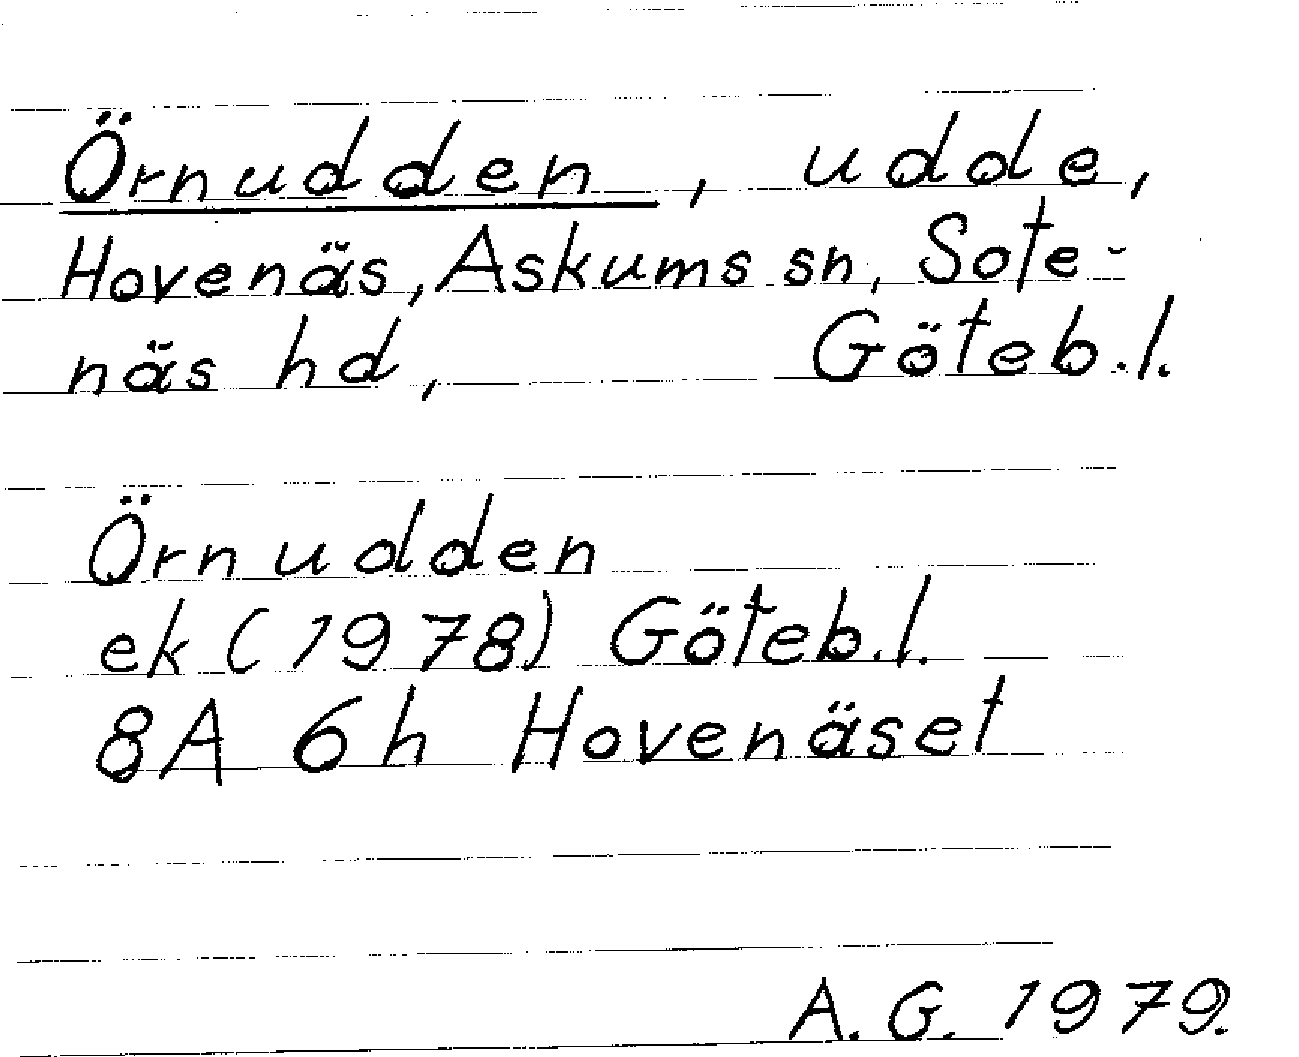 Örnudden, udde,
Hovenäs, Askums sn, Sote-
näs hd, Göteb.l.
Örnudden
ek (1978) Göteb.l.
8A 6h Hovenäset
A.G. 1979.